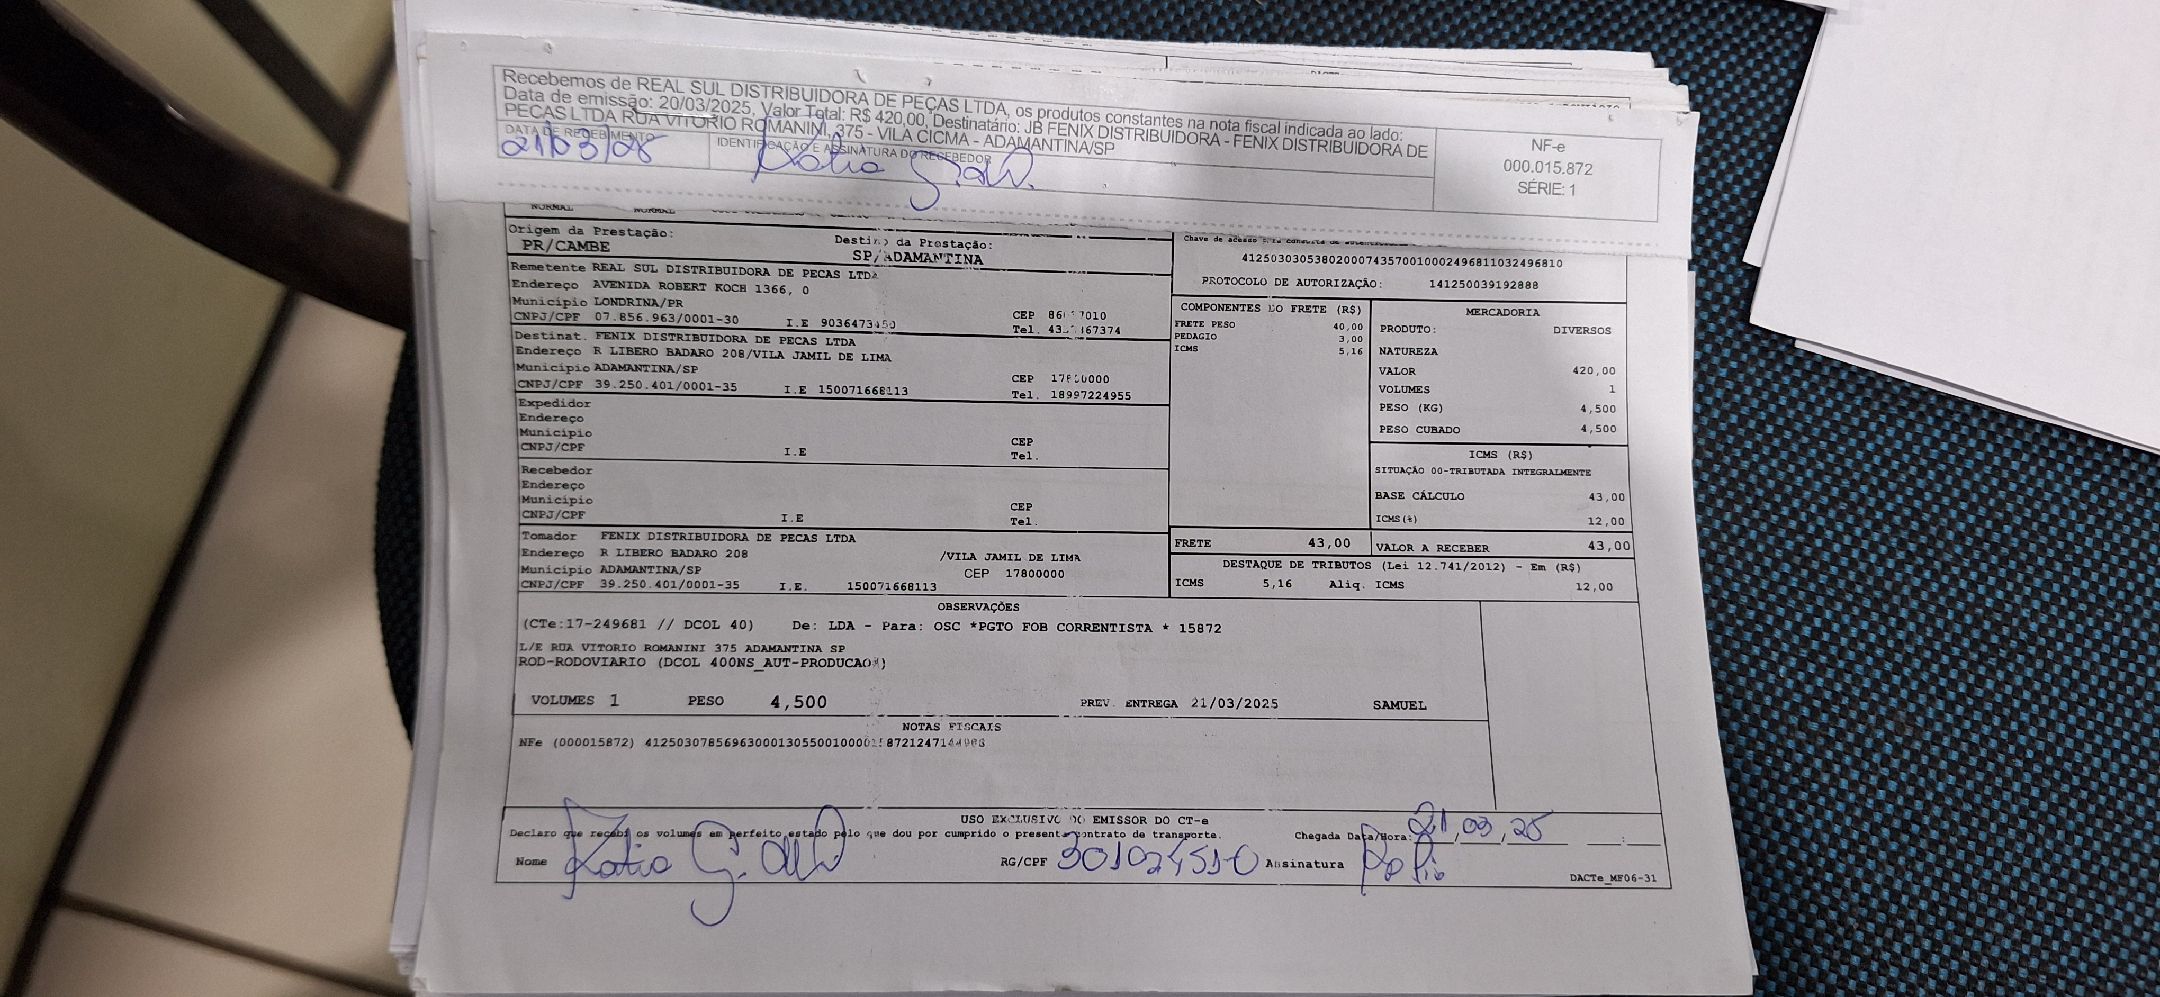 Recebemos de REAL SUL DISTRIBUIDORA DE PEÇAS LTDA, os produtos constantes na nota fiscal indicada ao lado:
Data de emissão: 20/03/2025, Valor Total: R$ 420,00, Destinatário: JB FENIX DISTRIBUIDORA - FENIX DISTRIBUIDORA DE
PEÇAS LTDA RUA VITORIO ROMANINI, 375 - VILA CICMA - ADAMANTINA/SP
DATA DE RECEBIMENTO
21/03/25
IDENTIFICAÇÃO E ASSINATURA DO RECEBEDOR
Katia
NF-e
000.015.872
SÉRIE: 1
NORMAL NORMAL
Origem da Prestação:
PR/CAMBE
Destino da Prestação:
SP/ADAMANTINA
Remetente REAL SUL DISTRIBUIDORA DE PECAS LTDA
Endereço AVENIDA ROBERT KOCH 1366, 0
Município LONDRINA/PR
CEP 7010
CNPJ/CPF 07.856.963/0001-30 I.E 9036473450 Tel. 467374
Destinat. FENIX DISTRIBUIDORA DE PECAS LTDA
Endereço R LIBERO BADARO 208/VILA JAMIL DE LIMA
Município ADAMANTINA/SP CEP 17800000
CNPJ/CPF 39.250.401/0001-35 I.E 150071668113 Tel. 18997224955
Expedidor
Endereço
Município CEP
CNPJ/CPF I.E Tel.
Recebedor
Endereço
Município CEP
CNPJ/CPF I.E Tel.
Tomador FENIX DISTRIBUIDORA DE PECAS LTDA
Endereço R LIBERO BADARO 208 /VILA JAMIL DE LIMA
Município ADAMANTINA/SP CEP 17800000
CNPJ/CPF 39.250.401/0001-35 I.E. 150071668113
Chave de acesso
41250303053802000743570010002496811032496810
PROTOCOLO DE AUTORIZAÇÃO: 141250039192888
COMPONENTES DO FRETE (R$)
FRETE PESO 40,00
PEDAGIO 3,00
ICMS 5,16
MERCADORIA
PRODUTO: DIVERSOS
NATUREZA
VALOR 420,00
VOLUMES 1
PESO (KG) 4,500
PESO CUBADO 4,500
ICMS (R$)
SITUAÇÃO 00-TRIBUTADA INTEGRALMENTE
BASE CÁLCULO 43,00
ICMS(%) 12,00
FRETE 43,00 VALOR A RECEBER 43,00
DESTAQUE DE TRIBUTOS (Lei 12.741/2012) - Em (R$)
ICMS 5,16 Aliq. ICMS 12,00
OBSERVAÇÕES
(CTe:17-249681 // DCOL 40) De: LDA - Para: OSC *PGTO FOB CORRENTISTA * 15872
L/E RUA VITORIO ROMANINI 375 ADAMANTINA SP
ROD-RODOVIARIO (DCOL 400NS_AUT-PRODUCAO*)
VOLUMES 1 PESO 4,500 PREV. ENTREGA 21/03/2025 SAMUEL
NOTAS FISCAIS
NFe (000015872)
USO EXCLUSIVO DO EMISSOR DO CT-e
Declaro que recebi os volumes em perfeito estado pelo que dou por cumprido o presente contrato de transporte. Chegada Data/Hora: 21,03,25
Nome Katia RG/CPF 301024510 Assinatura
DACTe_MF06-31